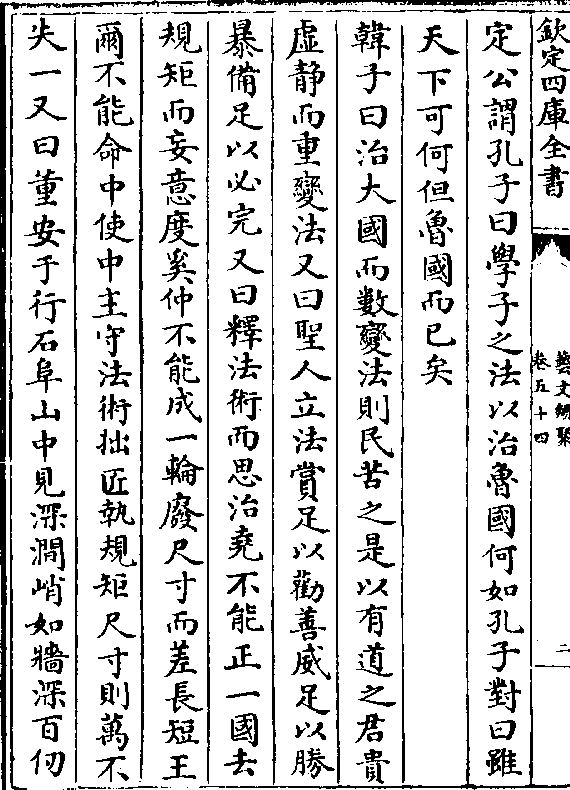 欽定四庫全書
藝文類聚
卷五十四
二
定公謂孔子曰學子之法以治魯國何如孔子對曰雖
天下可何但魯國而已矣
韓子曰治大國而數變法則民苦之是以有道之君貴
虛靜而重變法又曰聖人立法賞足以勸善威足以勝
暴備足以必完又曰釋法術而思治堯不能正一國去
規矩而妄意度奚仲不能成一輪廢尺寸而差長短王
爾不能命中使中主守法術拙匠執規矩尺寸則萬不
失一又曰董安于行石阜山中見深澗峭如牆深百仞